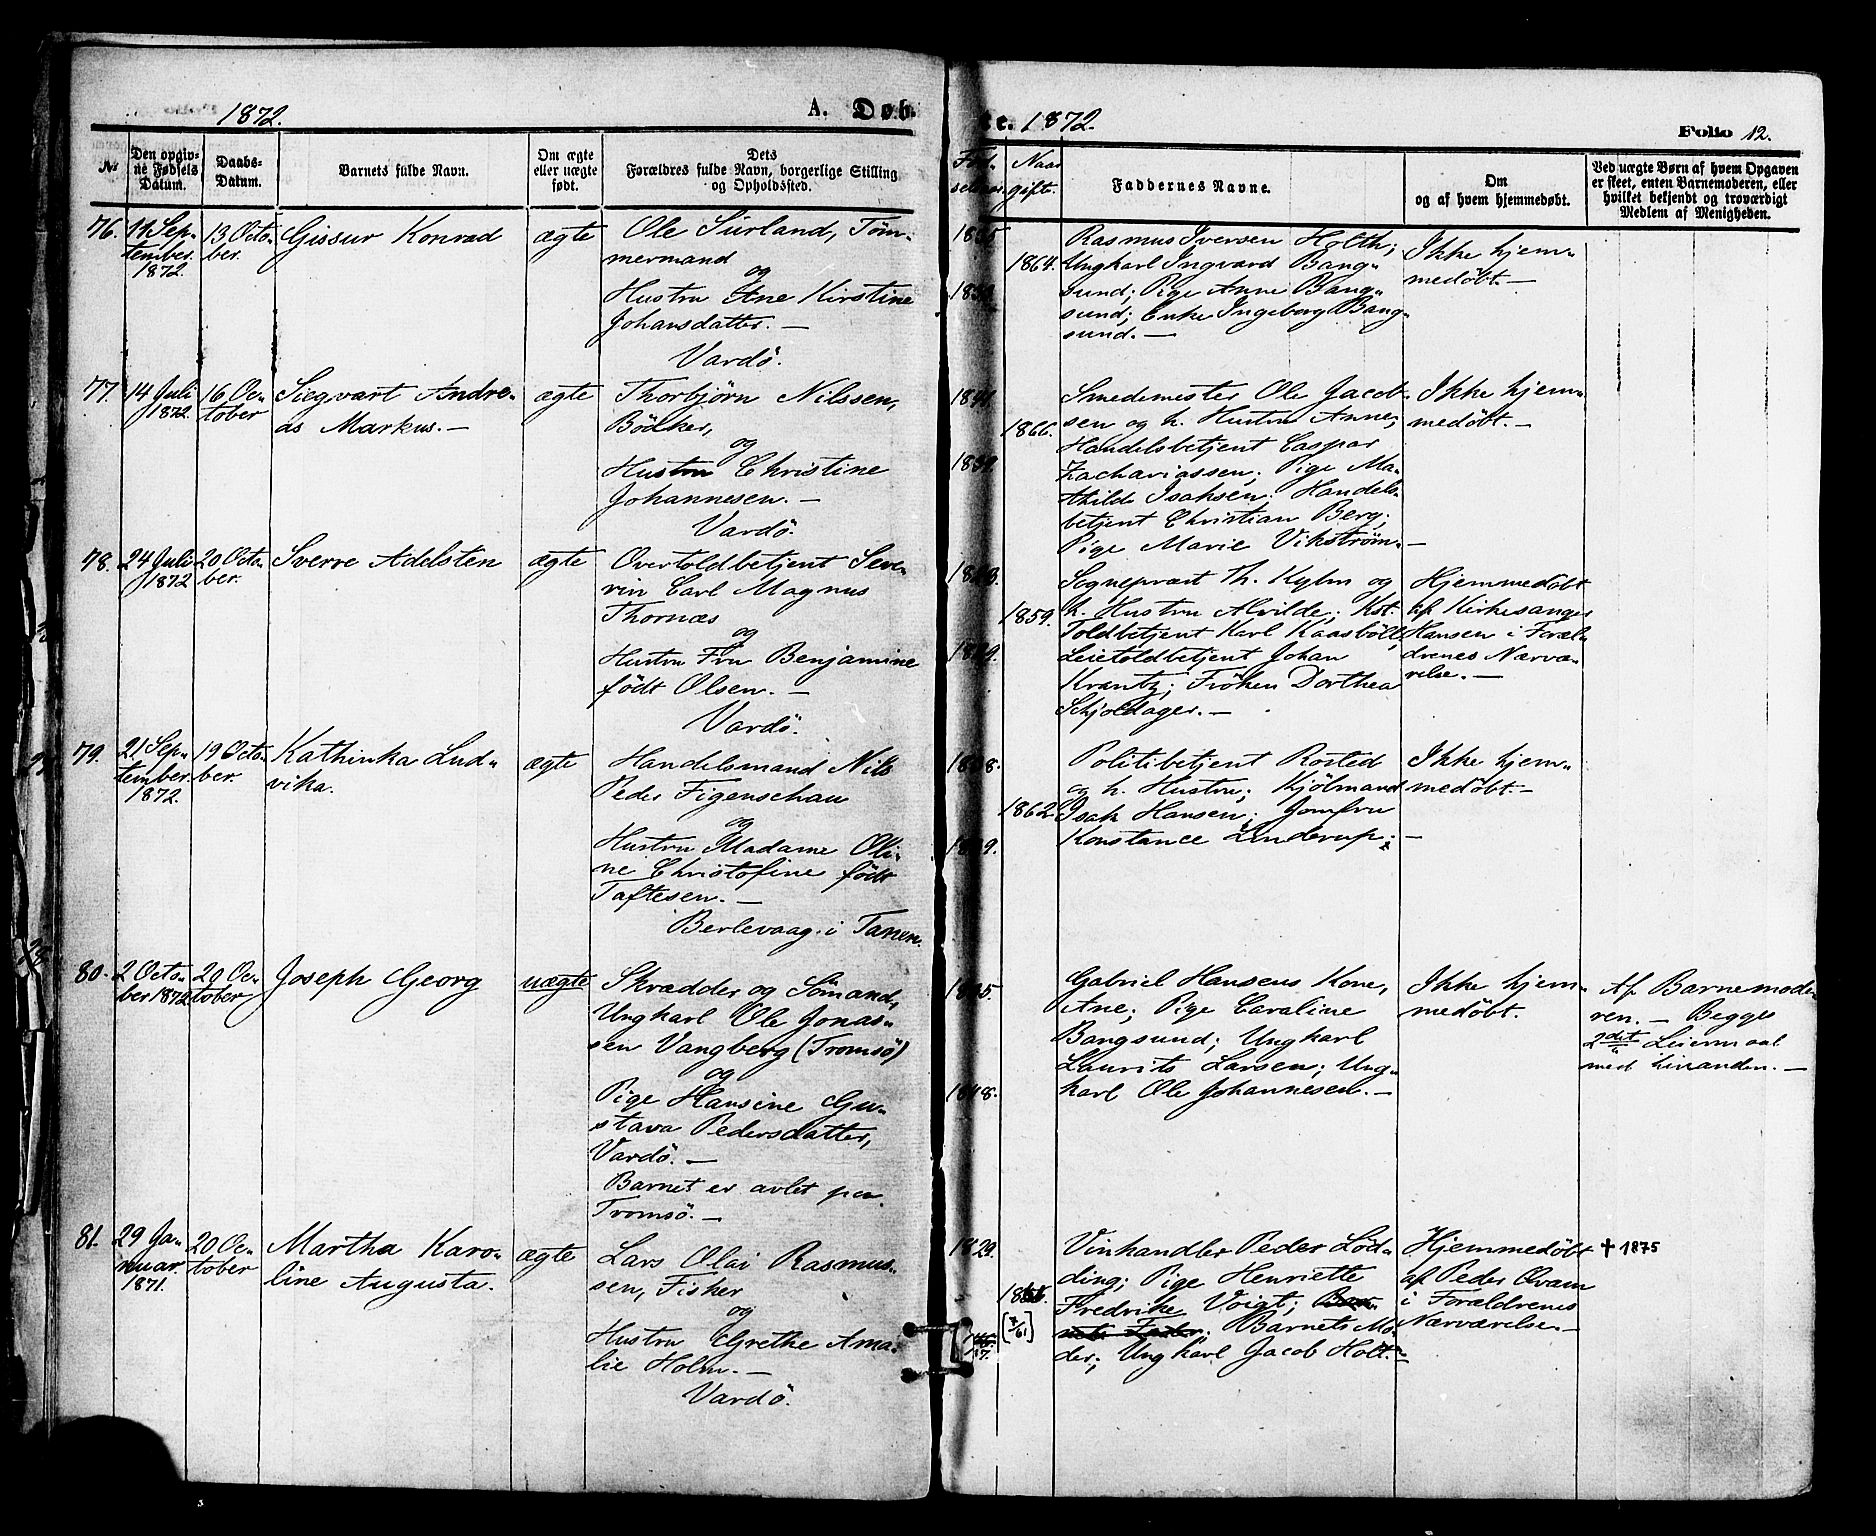 1872.
A. Døb-
te. 1872.
Folio 12.
№
Den opgiv-
ne Fødsels
Datum.
Daabs-
Datum.
Barnets fulde Navn.
Om ægte
eller uægte
født.
Dets
Forældres fulde Navn, borgerlige Stilling
og Opholdssted.
Naar
gift.
Faddernes Navne.
Om
og af hvem hjemmedøbt.
Ved uægte Børn af hvem Opgaven
er skeet, enten Barnemoderen, eller
hvilket bekjendt og troværdigt
Medlem af Menigheden.
76.
11 Sep-
tember.
1872.
13 Octo-
ber.
Gissur Konrad
ægte
Ole Surland, Töm-
mermand
og
Hustru Ane Kirstine
Johansdatter. —
Vardö.
1835
1864.
Rasmus Iversen Holth;
Ungkarl Ingvard Bang-
sund; Pige Anne Bang-
sund; Enke Ingeborg Bang-
sund. —
Ikke hjem-
medöbt. —
77.
14 Juli
1872.
16 Oc-
tober
Siegvart Andre-
as Markus. —
ægte
Thorbjörn Nilssen,
Bödker,
og
Hustru Christine
Johannesen. —
Vardö.
1841
1866.
1839.
Smedemester Ole Jacob-
sen og h. Hustru Anne;
Handelsbetjent Caspar
Zachariassen; Pige Ma-
thilde Isaksen; Handels-
betjent Christian Berg;
Pige Marie Vikström. —
Ikke hjem-
medöbt. —
78.
24 Juli
1872
20 Octo-
ber.
Sverre Adelsten
ægte
Overtoldbetjent Seve-
rin Carl Magnus
Thornæs
og
Hustru Fru Benjamine
födt Olsen. —
Vardö.
1859.
Sognepræst Th. Kylm og
h. Hustru Alvilde; Kst.
Toldbetjent Karl Kaasböll;
Leietoldbetjent Johan
Krantz; Fröken Dorthea
Schjoldager. —
Hjemmedöbt
af Kirkesanger
Hansen i Foræl-
drenes Nærvæ-
relse. —
79.
21 Sep-
tember.
1872.
19 Octo-
ber.
Kathinka Lud-
vika.
ægte
Handelsmand Nils
Peder Figenschau
og
Hustru Madame Oli-
ne Christofine födt
Taftesen. —
Berlevaag i Tanen.
1862
Politibetjent Rosted
og h. Hustru; Kjölmand
Isak Hansen; Jomfru
Konstance Linderup; —
Ikke hjem-
medöbt. —
80.
2 Octo-
ber 1872
20 Oc-
tober
Joseph Georg
uægte
Skrædder og Sömand,
Ungkarl Ole Jonas-
sen Vangberg (Tromsö)
og
Pige Hansine Gu-
stava Pedersdatter,
Vardö. —
Barnet er avlet paa
Tromsö. —
1848.
Gabriel Hansens Kone,
Ane; Pige Caraline
Bangsund; Ungkarl
Laurits Larsen; Ung-
karl Ole Johannesen. —
Ikke hjem-
medöbt.
Af Barnemode-
ren. — Begges
2det Leiermaal
med hinanden. —
81.
29 Ja-
nuar.
1871.
20 Oc-
tober
Martha Karo-
line Augusta.
ægte
Lars Olai Rasmus-
sen, Fisher
og
Hustru Grethe Ama-
lie Holm. —
Vardö.
1829.
Vinhandler Peder Löd-
ding; Pige Henriette
Fredrike Voigt; Bar-
nets Fader; Barnets Mo-
der; Ungkarl Jacob Holt. —
Hjemmedöbt
af Peder Qvam
i Forældrenes
Nærværelse. —
† 1875